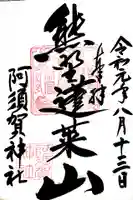 令和元年八月十三日
奉拝
熊野蓬莱山
阿須賀神社